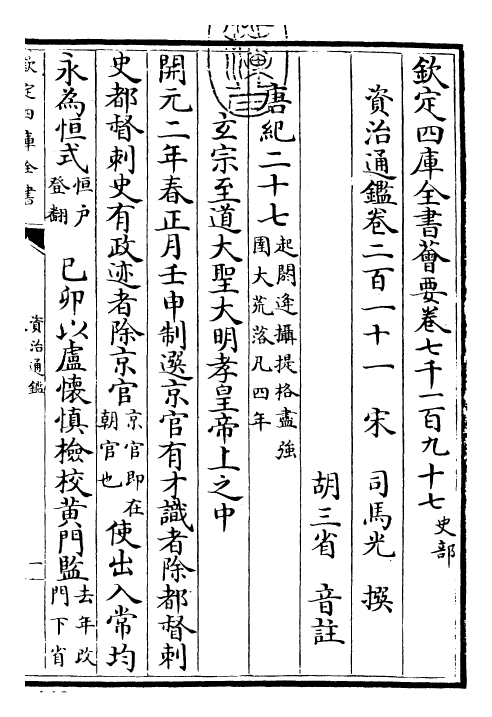 欽定四庫全書薈要卷七千一百九十七史部
資治通鑑卷二百一十一 宋 司馬光 撰
胡三省 音註
唐紀二十七起閼逢攝提格盡強圉大荒落凡四年
玄宗至道大聖大明孝皇帝上之中
開元二年春正月壬申制選京官有才識者除都督刺
史都督刺史有政迹者除京官京官即在朝官也使出入常均
永為恒式恒户登翻 己卯以盧懷慎檢校黄門監去年改門下省
欽定四庫全書
資治通鑑
一